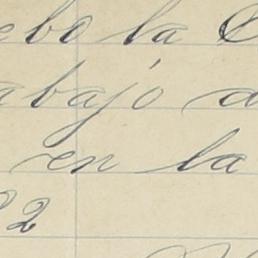 ebo la
abajó
en la
2